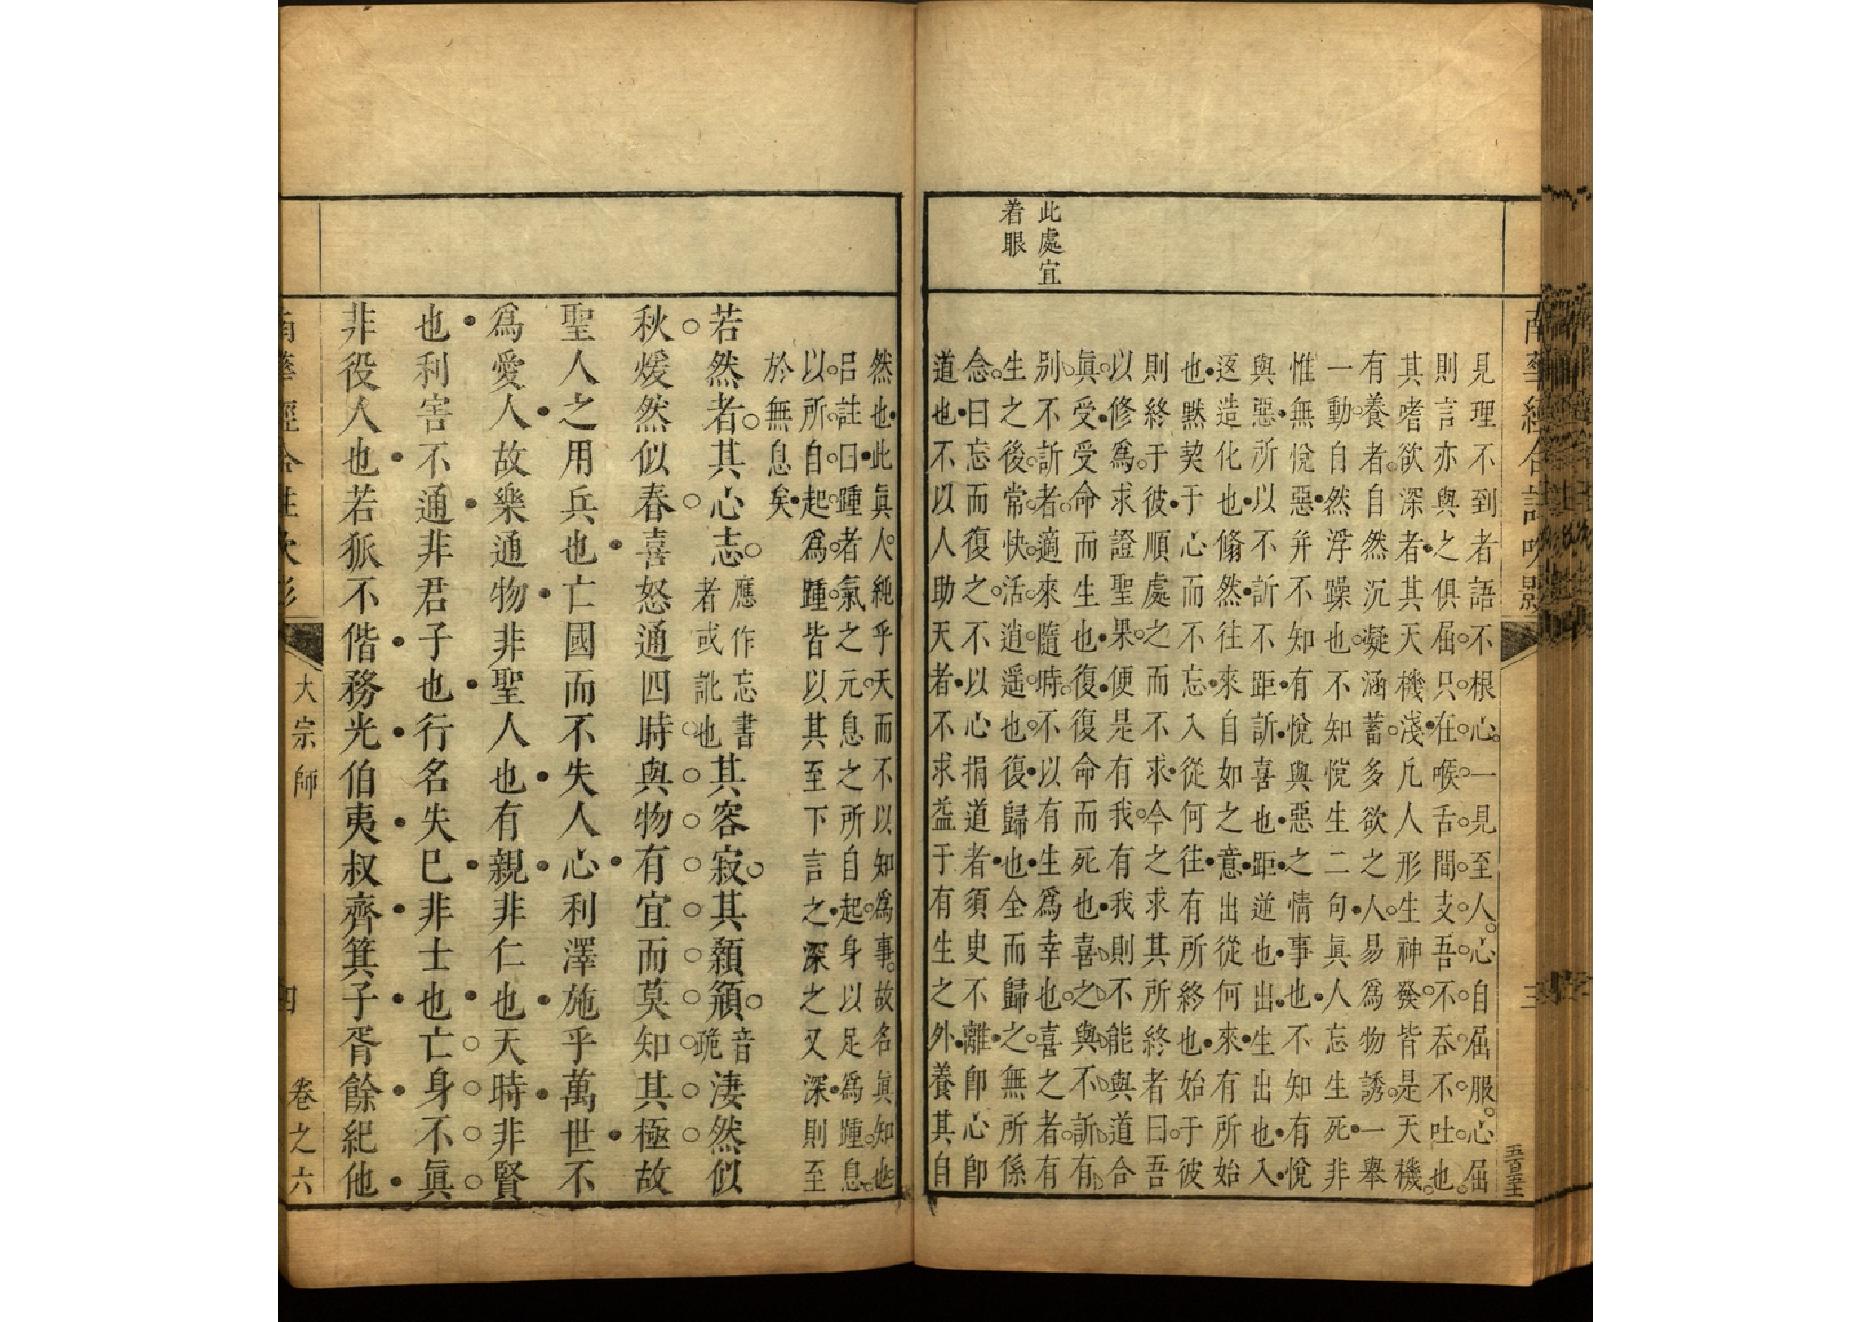 南華經合註吹影
三
此處宜
着眼
見理不到者語不根心一見至人心自屈服心屈
則言亦與之俱屈只在喉舌間支吾不吞不吐也
其嗜欲深者其天機淺凡人形生神發皆是天機
有養者自然沉凝涵蓄多欲之人易爲物誘一舉
一動自然浮躁也不知恱生二句眞人忘生死非
惟無悅惡幷不知有悅與惡之情事也不知有悅
與惡所以不訢不距訢喜也距逆也出生出也入
返造化也翛然往來自如之意出從何來有所始
也黙契于心而不忘入從何往有所終也始于彼
則終于彼順處之而不求今之求其所終者曰吾
以修爲求證聖果便是有我有我則不能與道合
眞受受命而生也復復命而死也喜之與不訢有
别不訢者適來隨時不以有生爲幸也喜之者有
生之後常快活逍遥也復歸也全而歸之無所係
念曰忘而復之不以心捐道者須臾不離卽心卽
道也不以人助天者不求益于有生之外養其自
然也此眞人純乎天而不以知爲事故名眞知也
呂註曰踵者氣之元息之所自起身以足爲踵息
以所自起爲踵皆以其至下言之深之又深則至
於無息矣
若然者其心志應作忘書者或訛也其容寂其顙頯音跪淒然似
秋煖然似春喜怒通四時與物有宜而莫知其極故
聖人之用兵也亡國而不失人心利澤施乎萬世不
爲愛人故樂通物非聖人也有親非仁也天時非賢
也利害不通非君子也行名失已非士也亡身不眞
非役人也若狐不偕務光伯夷叔齊箕子胥餘紀他
南華經合註吹影
大宗師
四
卷之六